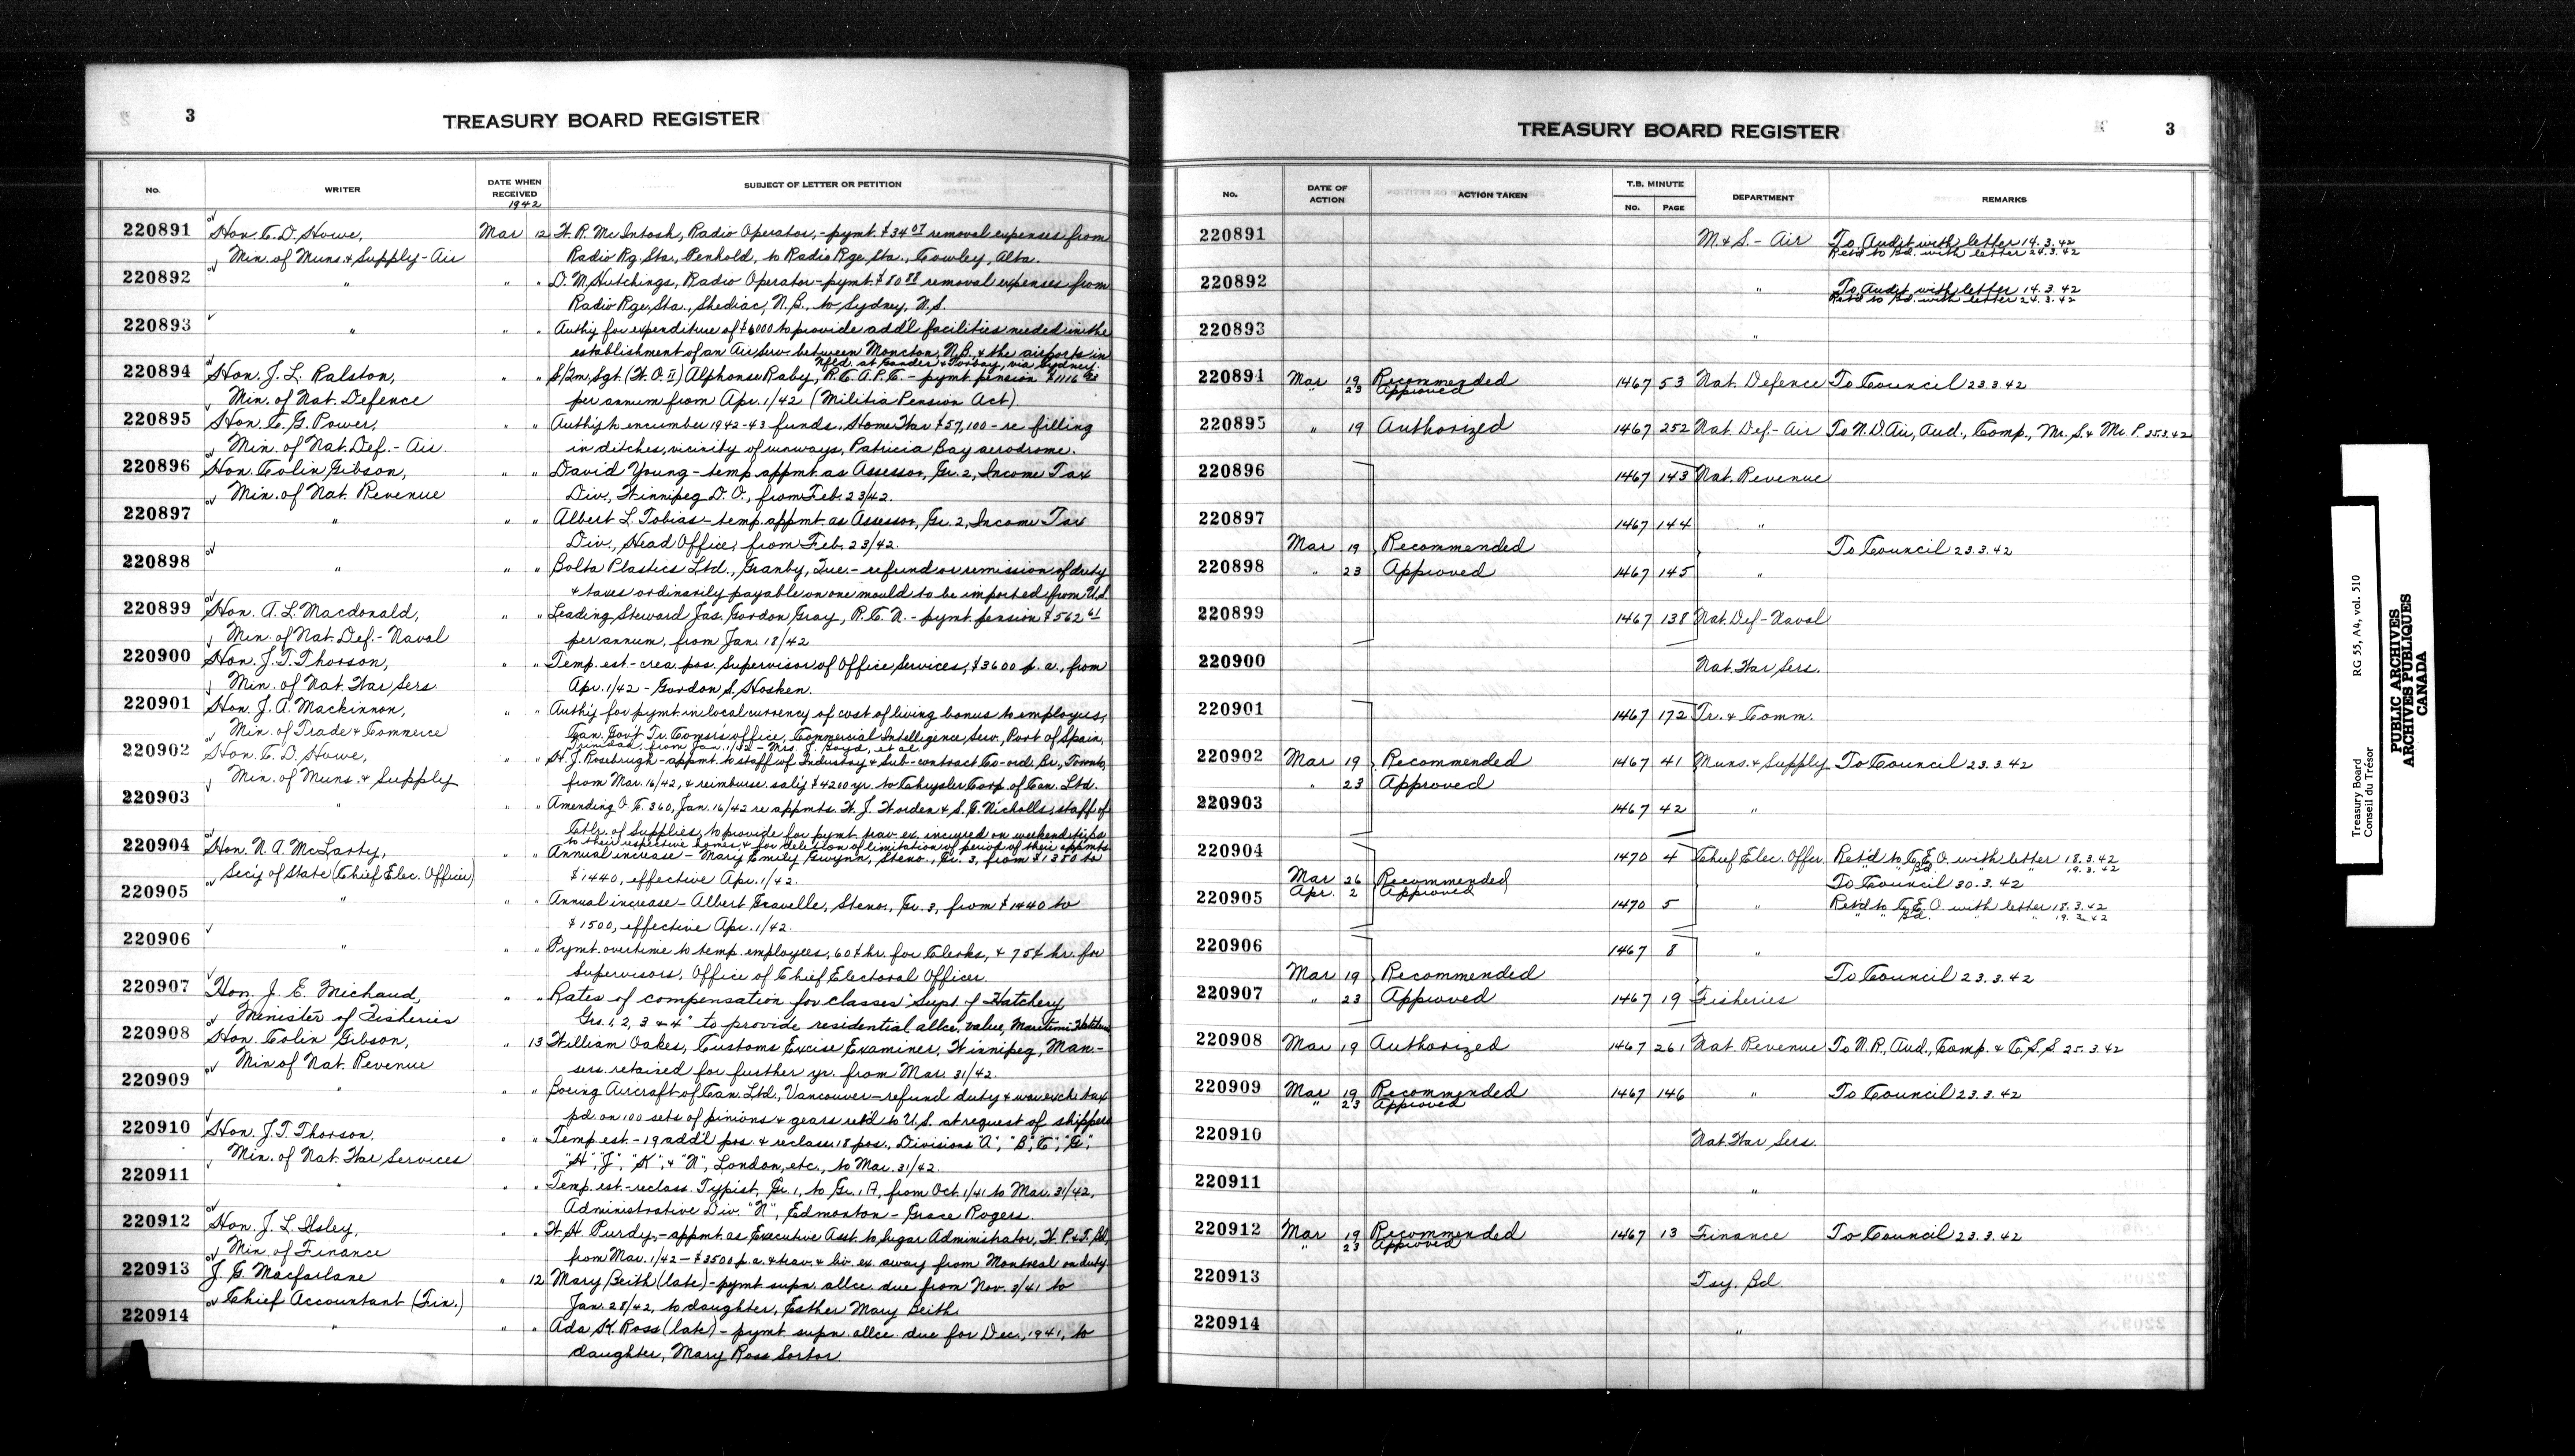 3
TREASURY BOARD REGISTER
No. WRITER DATE WHEN RECEIVED SUBJECT OF LETTER OR PETITION
1942
220891 Hon. C. D. Howe, Mar 12 W. R. McIntosh, Radio Operator, - pymt. $34.07 removal expenses from
Min. of Muns. & Supply - Air Radio Rg. Sta., Penhold, to Radio Rge. Sta., Cowley, Alta.
220892 " " " D. M. Hutchings, Radio Operator - pymt. $80.88 removal expenses from
Radio Rge. Sta., Shediac, N.B., to Sydney, N.S.
220893 " " " Auth'y for expenditure of $6000 to provide add'l facilities needed in the
establishment of an Air Serv. between Moncton, N.B. & the airports in
Nfld. at Gander & Torbay, via Sydney.
220894 Hon. J. L. Ralston, " " S/Qm. Sgt. (W.O. II) Alphonse Raby, R.C.A.P.C. - pymt. pension $1116
Min. of Nat. Defence per annum from Apr. 1/42 (Militia Pension Act)
220895 Hon. C. G. Power, " " Auth'y to encumber 1942-43 funds, Home War $57,100 - re filling
Min. of Nat. Def. - Air. in ditches, vicinity of runways, Patricia Bay aerodrome.
220896 Hon. Colin Gibson, " " David Young - temp. appmt. as Assessor, Gr. 2, Income Tax
Min. of Nat. Revenue Div., Winnipeg D.O., from Feb. 23/42.
220897 " " " Albert L. Tobias - temp. appmt. as Assessor, Gr. 2, Income Tax
Div., Head Office, from Feb. 23/42.
220898 " " " Bolta Plastics Ltd., Granby, Que. - refund or remission of duty
& taxes ordinarily payable on one mould to be imported from U.S.
220899 Hon. A. L. Macdonald, " " Leading Steward Jas. Gordon Gray, R.C.N. - pymt. pension $562.61
Min. of Nat. Def. - Naval per annum, from Jan. 18/42
220900 Hon. J. T. Thorson, " " Temp. est. - crea. pos. Supervisor of Office Services, $3600 p.a., from
Min. of Nat. War Sers. Apr. 1/42 - Gordon S. Hosken.
220901 Hon. J. A. Mackinnon, " " Auth'y for pymt. in local currency of cost of living bonus to employees,
Min. of Trade & Commerce Can. Gov't Tr. Comr's office, Commercial Intelligence Serv., Port of Spain,
Trinidad, from Jan. 1/42 - Mrs. J. Boyd, et al.
220902 Hon. C. D. Howe, " " H. J. Rosebrugh - appmt. to staff of Industry & Sub-contract Co-ord. Br., Toronto,
Min. of Muns. & Supply from Mar. 16/42, & reimburse. sal'y $4200 yr. to Chrysler Corp. of Can. Ltd.
220903 " " " Amending O.C. 360, Jan. 16/42 re appmts. W. J. Worden & S. G. Nicholls, staff of
Ctlr. of Supplies, to provide for pymt. trav. ex. incurred on weekend trips
to their respective homes, & for deletion of limitation of period of their appmts.
220904 Hon. N. A. McLarty, " " Annual increase - Mary Emily Gwynn, Steno., Gr. 3, from $1380 to
Sec'y of State (Chief Elec. Officer) $1440, effective Apr. 1/42.
220905 " " " Annual increase - Albert Gravelle, Steno., Gr. 3, from $1440 to
$1500, effective Apr. 1/42.
220906 " " " Pymt. overtime to temp. employees, 60¢ hr. for Clerks, & 75¢ hr. for
Supervisors, Office of Chief Electoral Officer.
220907 Hon. J. E. Michaud, " " Rates of compensation for classes "Supt. of Hatchery
Minister of Fisheries Grs. 1, 2, 3 & 4" to provide residential allce. value, Maritime
220908 Hon. Colin Gibson, " 13 William Oakes, Customs Excise Examiner, Winnipeg, Man. -
Min. of Nat. Revenue sers. retained for further yr. from Mar. 31/42.
220909 " " " Boeing Aircraft of Can. Ltd., Vancouver - refund duty & war exch. tax
pd. on 100 sets of pinions & gears ret'd to U.S. at request of shippers
220910 Hon. J. T. Thorson, " " Temp. est. - 19 add'l pos. & reclass. 18 pos., Divisions "A", "B", "C", "G",
Min. of Nat. War Services "H", "J", "K", & "N", London, etc., to Mar. 31/42.
220911 " " " Temp. est. - reclass. Typist, Gr. 1, to Gr. 1A, from Oct. 1/41 to Mar. 31/42,
Administrative Div. "N", Edmonton - Grace Rogers.
220912 Hon. J. L. Ilsley, " " W. H. Purdy, - appmt. as Executive Asst. to Sugar Administrator, W.P.&T.Bd.,
Min. of Finance from Mar. 1/42 - $3500 p.a. & trav. & liv. ex. away from Montreal on duty
220913 J. G. Macfarlane " 12 Mary Beith (late) - pymt. supn. allce. due from Nov. 3/41 to
Chief Accountant (Fin.) Jan. 28/42, to daughter, Esther Mary Beith.
220914 " " " Ada K. Ross (late) - pymt. supn. allce. due for Dec., 1941, to
daughter, Mary Ross Sortor.
TREASURY BOARD REGISTER
3
No. DATE OF ACTION ACTION TAKEN T.B. MINUTE No. PAGE DEPARTMENT REMARKS
220891 M. & S. - Air To Audit with letter 14.3.42
Ret'd to Bd. with letter 24.3.42
220892 " To Audit with letter 14.3.42
Ret'd to Bd. with letter 24.3.42
220893 "
220894 Mar 19 Recommended 1467 53 Nat. Defence To Council 23.3.42
" 23 Approved
220895 " 19 Authorized 1467 252 Nat. Def - Air To N.D Air, Aud., Comp., Mr. S. & Mr. P. 25.3.42
220896 1467 143 Nat. Revenue
220897 1467 144 "
Mar 19 Recommended To Council 23.3.42
220898 " 23 Approved 1467 145 "
220899 1467 138 Nat. Def - Naval
220900 Nat. War Sers.
220901 1467 172 Tr. & Comm.
220902 Mar 19 Recommended 1467 41 Muns. & Supply To Council 23.3.42
" 23 Approved
220903 1467 42 "
220904 1470 4 Chief Elec. Offcr. Ret'd to C.E.O. with letter 18.3.42
" " Bd. " " 19.3.42
Mar 26 Recommended To Council 30.3.42
Apr. 2 Approved
220905 1470 5 " Ret'd to C.E.O. with letter 18.3.42
" " Bd. " " 19.3.42
220906 1467 8 "
Mar 19 Recommended To Council 23.3.42
220907 " 23 Approved 1467 19 Fisheries
220908 Mar 19 Authorized 1467 261 Nat. Revenue To N.R., Aud., Comp. & C.S.S. 25.3.42
220909 Mar 19 Recommended 1467 146 " To Council 23.3.42
" 23 Approved
220910 Nat. War Sers.
220911 "
220912 Mar 19 Recommended 1467 13 Finance To Council 23.3.42
" 23 Approved
220913 Tsy. Bd.
220914 "
Treasury Board RG 55, A4, vol. 510
Conseil du Trésor
PUBLIC ARCHIVES
ARCHIVES PUBLIQUES
CANADA